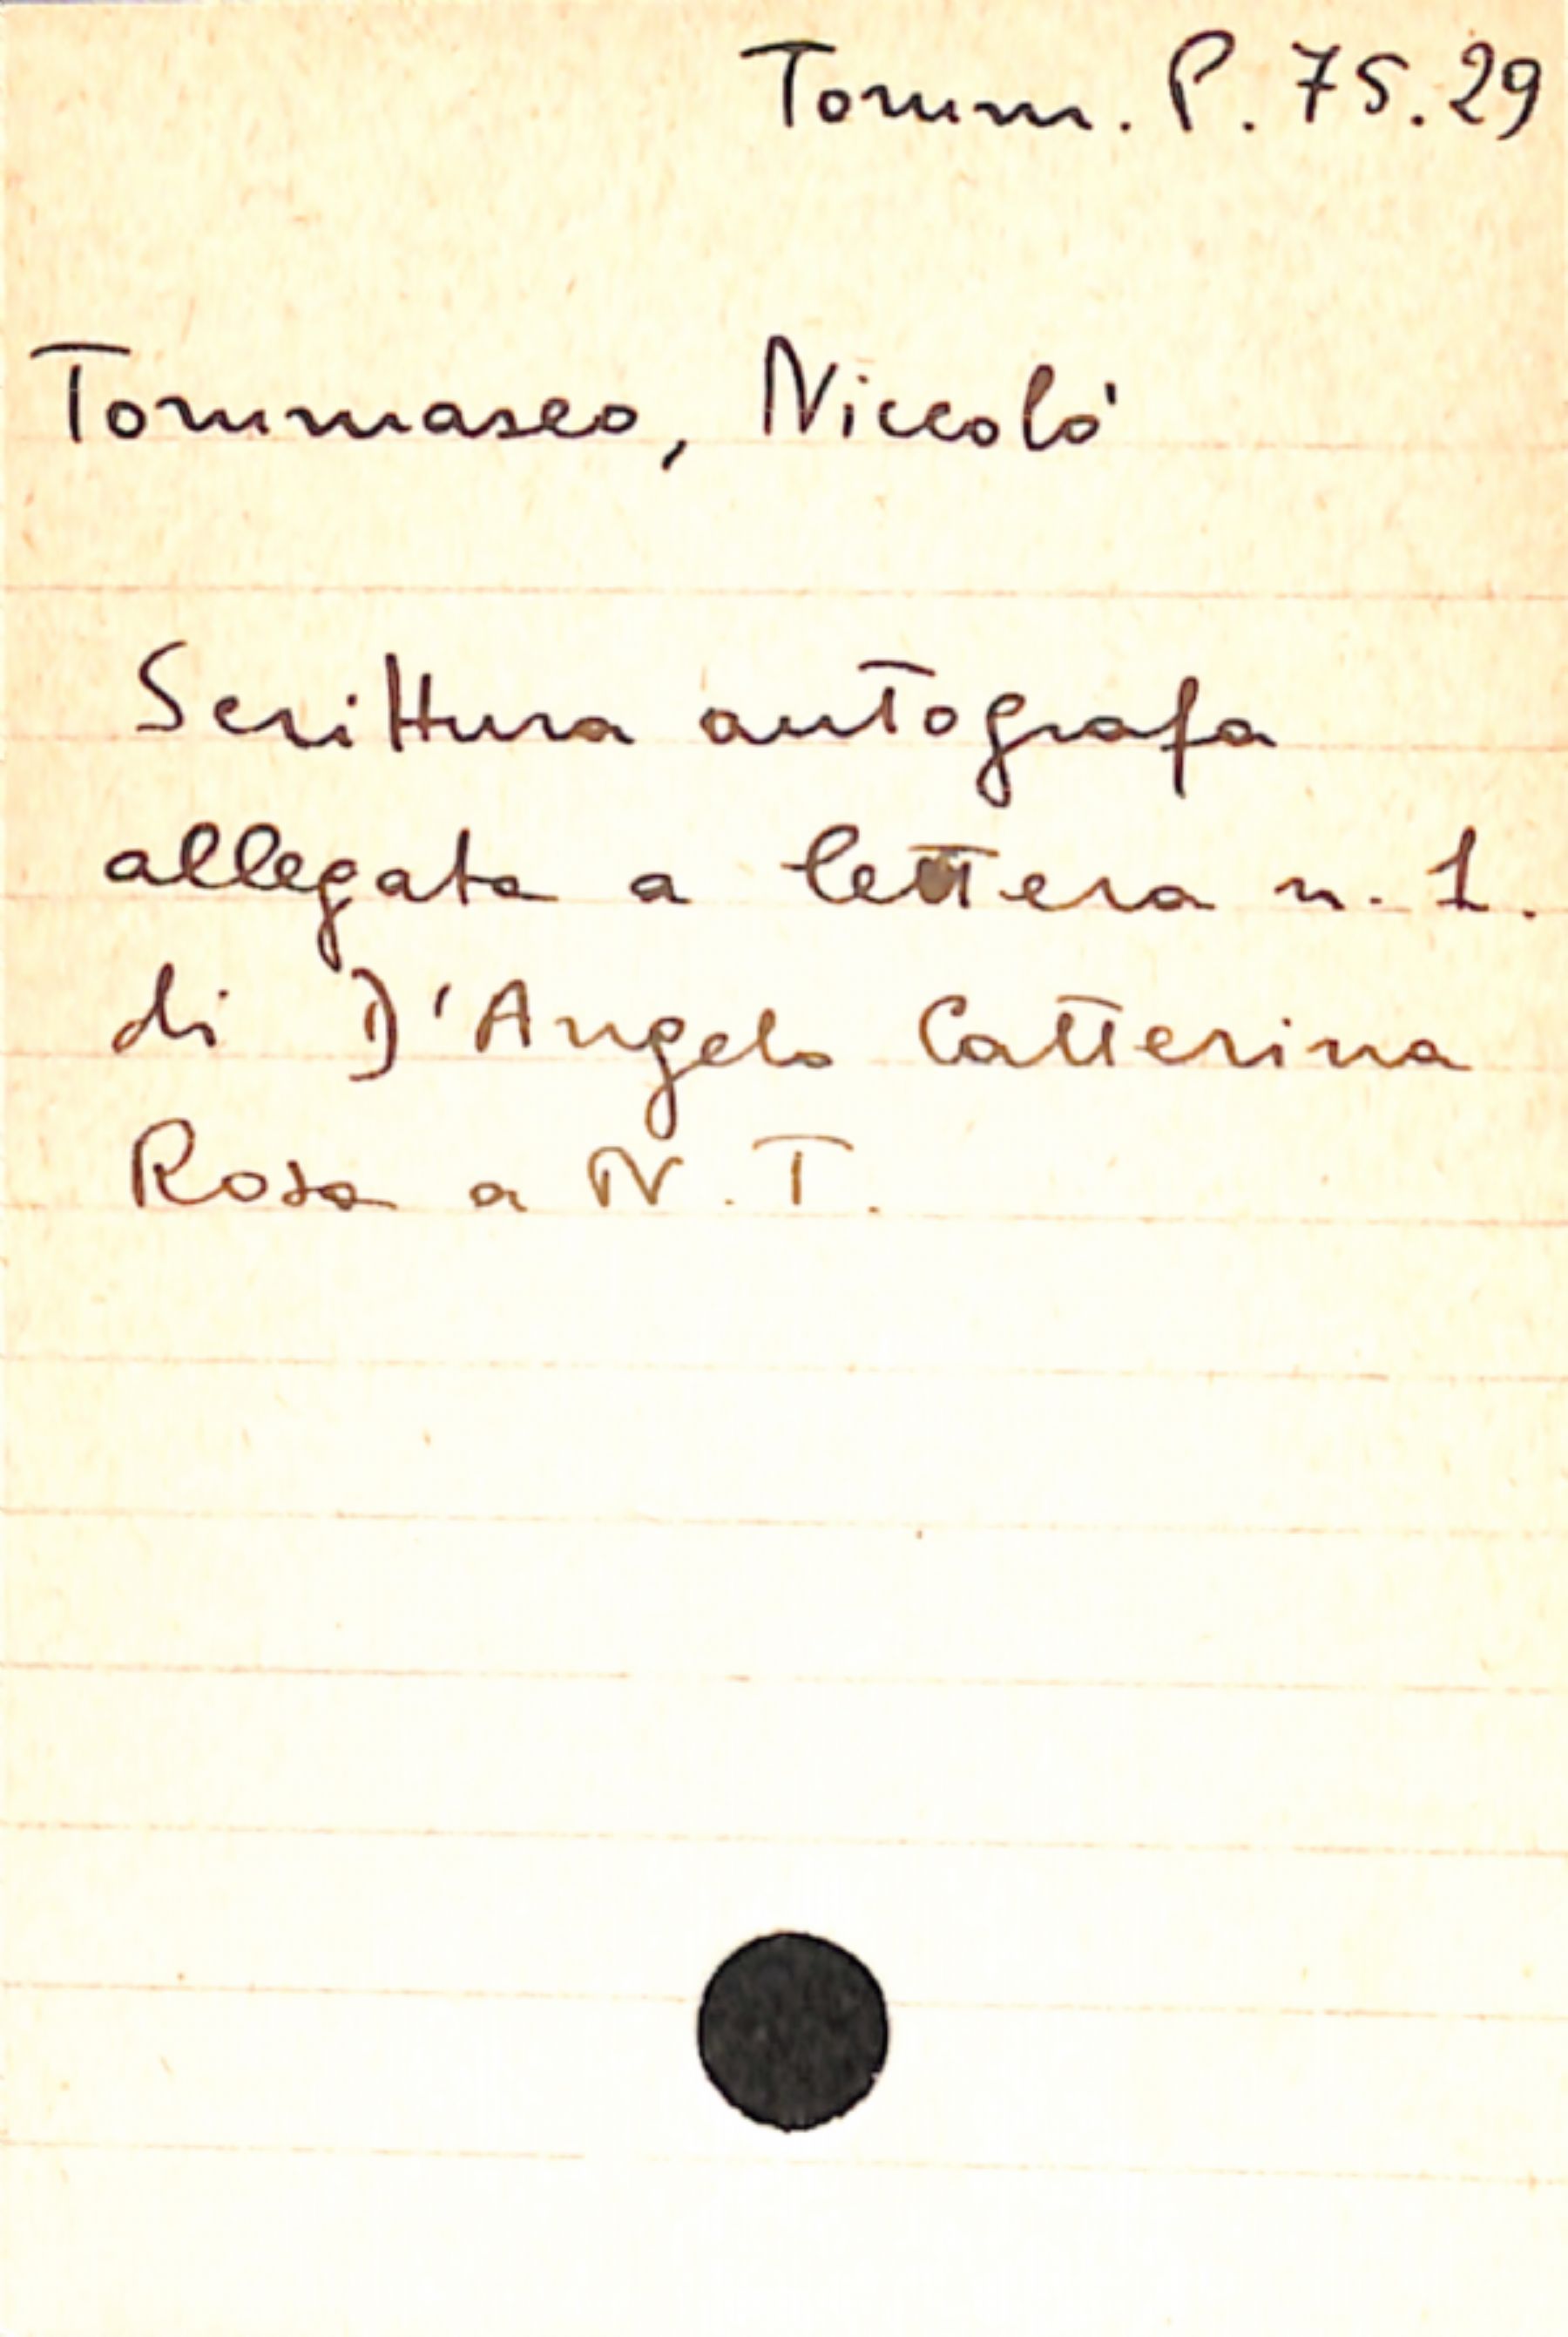 Tomm. P. 75. 29
Tommaseo, Niccolò
Scrittura autografa
allegata a lettera n. 1.
di D'Angelo Catterina
Rosa a N. T.